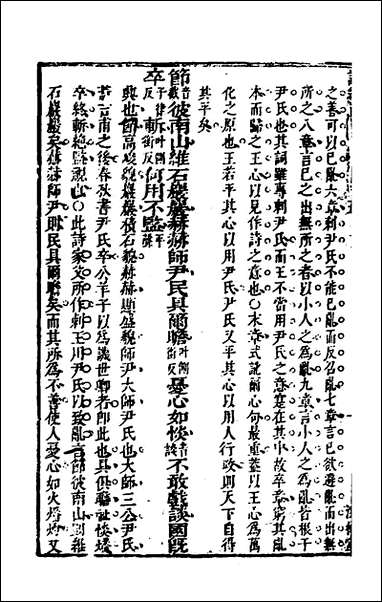 之善可以已亂六章刺尹氏不能已亂而反召亂七章言已欲避亂而出無
所之八章言已之出無所之者以小人之為亂九章言小人之為亂皆根于
尹氏也其詞雖專刺尹氏而王不當用尹氏之意寔在其中故卒章窮其亂
本而歸之王心以見作詩之意也○末章式訛爾心句最重蓋以王心為萬
化之原也王若平其心以用尹氏尹氏又平其心以用人行政則天下自得
其平矣
節音截彼南山維石巖巖赫赫師尹民具爾瞻叶側銜反憂心如惔音談不敢戲談國既
卒子律反斬叶側銜反何用不監平聲
興也節高峻貌巖巖積石貌赫赫顯盛貌師尹大師尹氏也大師三公尹氏
蓋吉甫之後春秋書尹氏卒公羊子以為譏世卿者即此也具俱瞻視惔燔
卒終斬絕監視也○此詩家父所作刺王用尹氏以致亂言節彼南山則維
石巖巖矣赫赫師尹則民具爾瞻矣而其所為不善使人憂心如火燔灼又